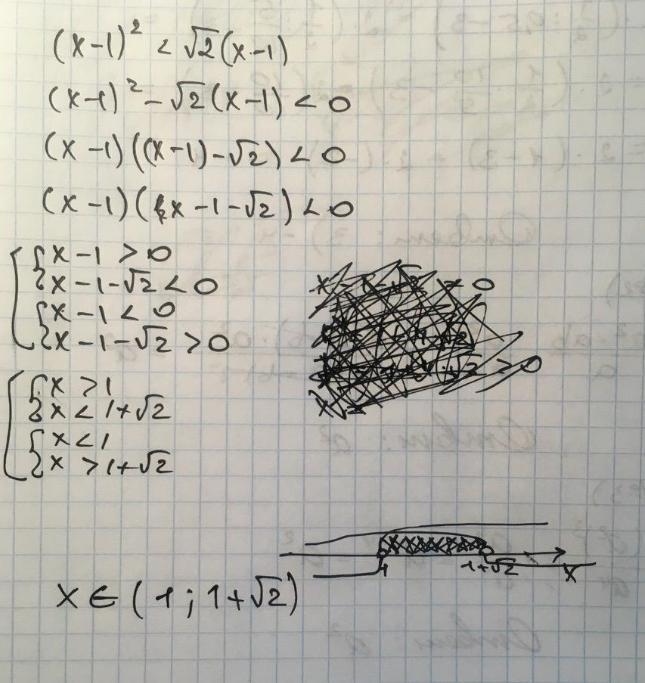 (x-1)² < √2(x-1)
(x-1)² - √2(x-1) < 0
(x-1)((x-1)-√2) < 0
(x-1)(x-1-√2) < 0
x-1 > 0
x-1-√2 < 0
x-1 < 0
x-1-√2 > 0
x > 1
x < 1+√2
x < 1
x > 1+√2
1 1+√2 x
x ∈ (1; 1+√2)